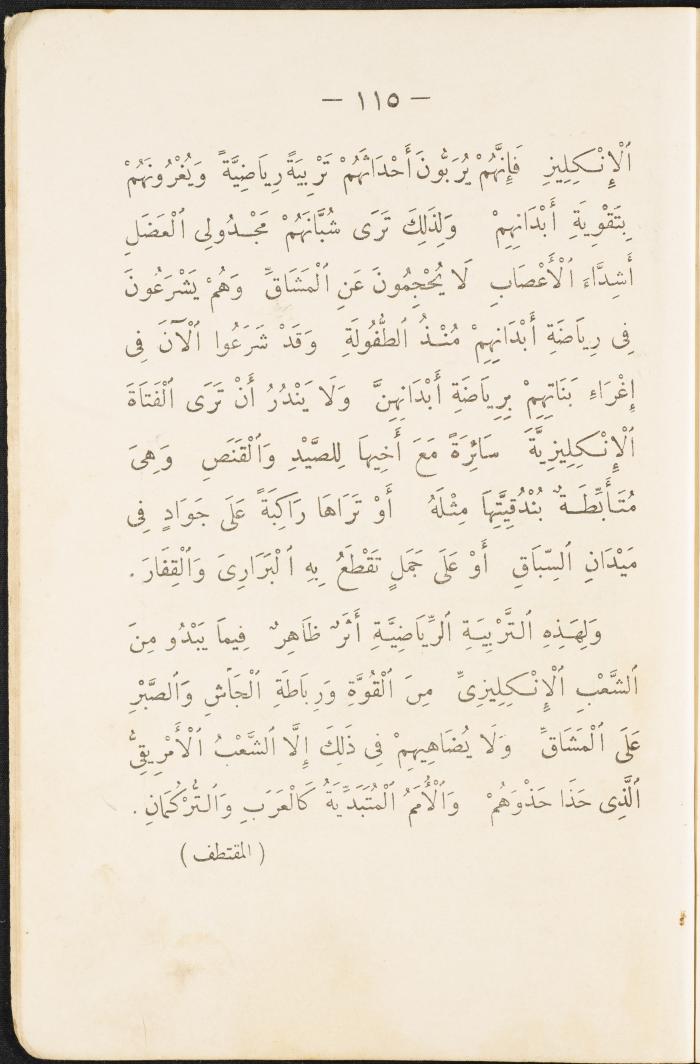 — ١١٥ —
ٱلْإِنْكِلِيزِ فَإِنَّهُمْ يُرَبُّونَ أَحْدَاثَهُمْ تَرْبِيَةً رِيَاضِيَّةً وَيُغْرُونَهُمْ
بِتَقْوِيَةِ أَبْدَانِهِمْ وَلِذَلِكَ تَرَى شُبَّانَهُمْ مَجْدُولِى ٱلْعَضَلِ
أَشِدَّاءَ ٱلْأَعْصَابِ لَا يُحْجِمُونَ عَنِ ٱلْمَشَاقِّ وَهُمْ يَشْرَعُونَ
فِى رِيَاضَةِ أَبْدَانِهِمْ مُنْذُ ٱلطُّفُولَةِ وَقَدْ شَرَعُوا ٱلْآنَ فِى
إِغْرَاءِ بَنَاتِهِمْ بِرِيَاضَةِ أَبْدَانِهِنَّ وَلَا يَنْدُرُ أَنْ تَرَى ٱلْفَتَاةَ
ٱلْإِنْكِلِيزِيَّةَ سَائِرَةً مَعَ أَخِيهَا لِلصَّيْدِ وَٱلْقَنَصِ وَهِىَ
مُتَأَبِّطَةٌ بُنْدُقِيَّتَهَا مِثْلَهُ أَوْ تَرَاهَا رَاكِبَةً عَلَى جَوَادٍ فِى
مَيْدَانِ ٱلسِّبَاقِ أَوْ عَلَى جَمَلٍ تَقْطَعُ بِهِ ٱلْبَرَارِىَ وَٱلْقِفَارَ .
وَلِهَذِهِ ٱلتَّرْبِيَةِ ٱلرِّيَاضِيَّةِ أَثَرٌ ظَاهِرٌ فِيمَا يَبْدُو مِنَ
ٱلشَّعْبِ ٱلْإِنْكِلِيزِىِّ مِنَ ٱلْقُوَّةِ وَرِبَاطَةِ ٱلْجَأْشِ وَٱلصَّبْرِ
عَلَى ٱلْمَشَاقِّ وَلَا يُضَاهِيهِمْ فِى ذَلِكَ إِلَّا ٱلشَّعْبُ ٱلْأَمْرِيقِىُّ
ٱلَّذِى حَذَا حَذْوَهُمْ وَٱلْأُمَمُ ٱلْمُتَبَدِّيَةُ كَالْعَرَبِ وَٱلتُّرْكُمَانِ .
( المقتطف )